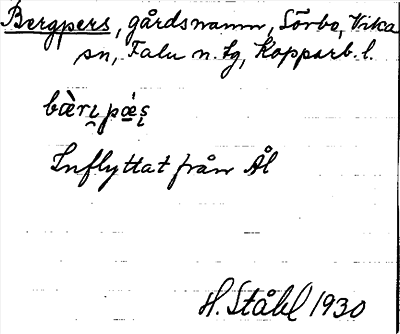 Bergpers, gårdsnamn, Sörbo, Vika
sn, Falu n. tg, Kopparb. l.
bæ̀rɩ pǽs̨
Inflyttat från Ål
H. Ståhl 1930